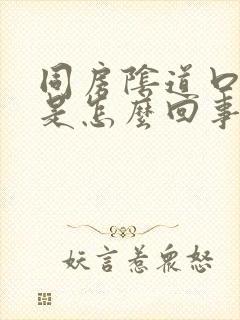 同房陰道口
是怎麼回事
妖言惹眾怒